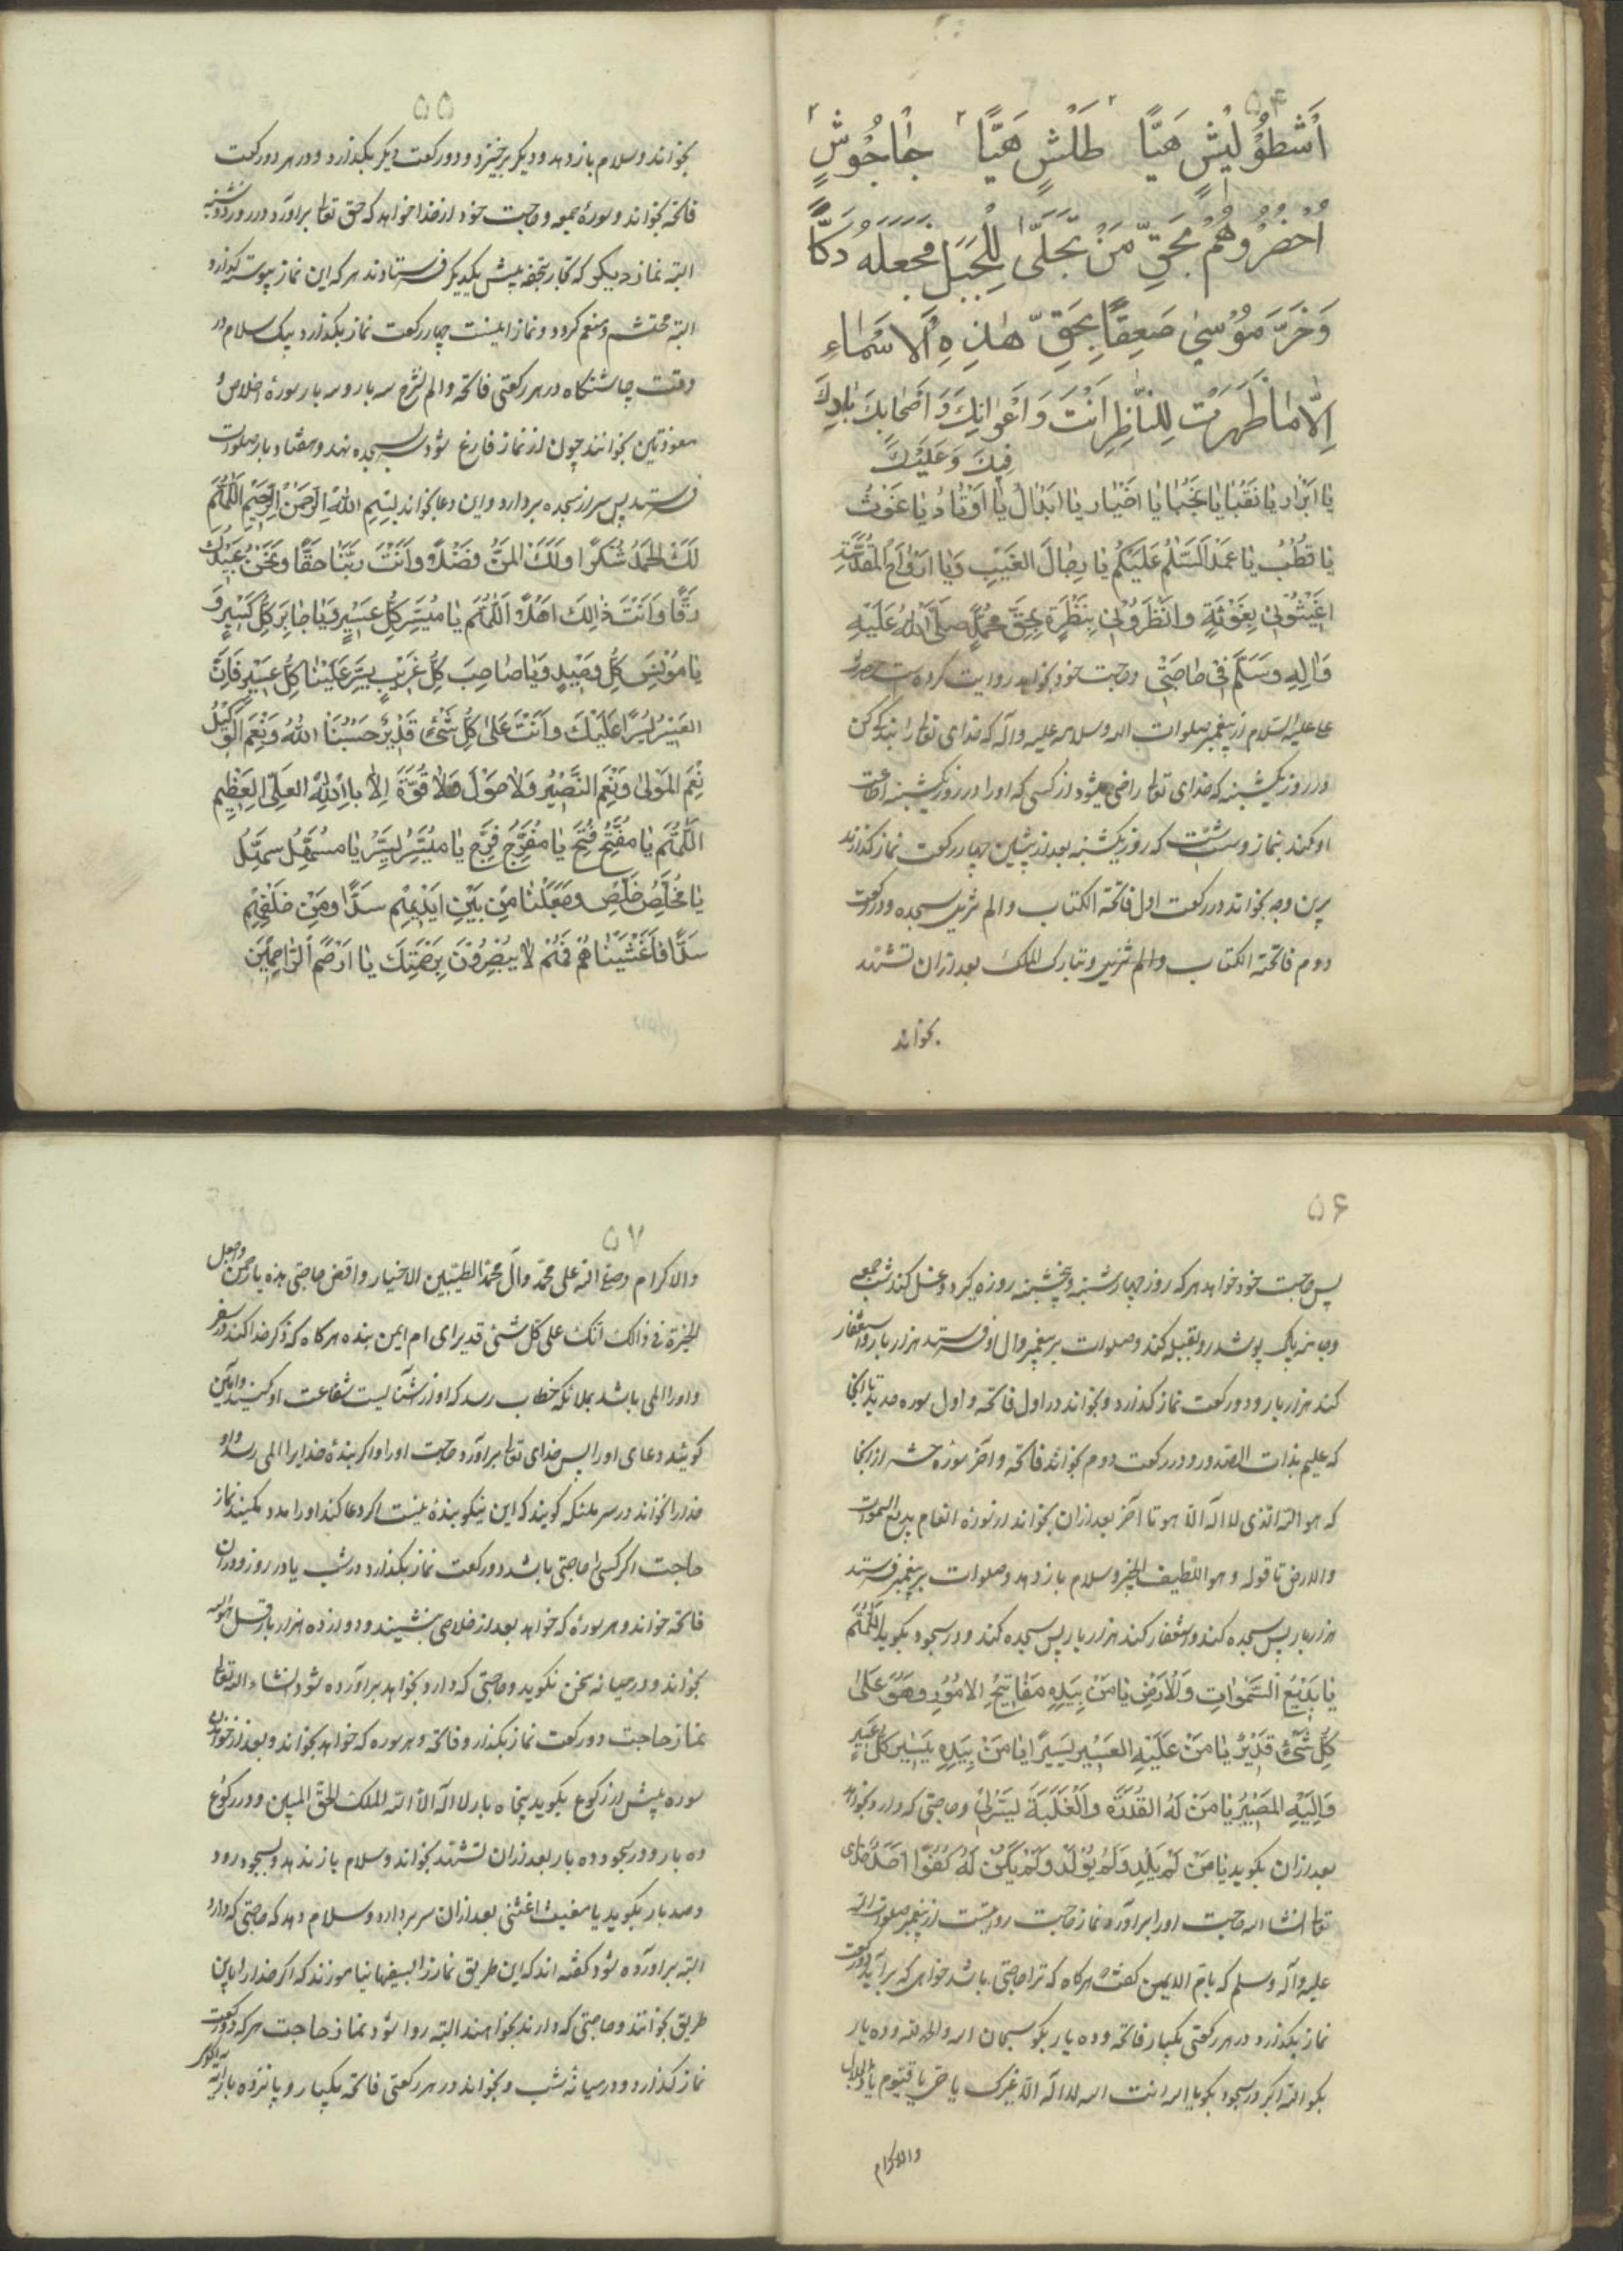 ۵۴
اَشْطُوُلَيْشٍ هَيًّا طَلْشٍ هَيًّا جٰاجُوُشٍ
اُحْضُرُوهُمْ بِحَقِّ مَنْ تَجَلَّىٰ لِلْجَبَلِ فَجَعَلَهُ دَكًّا
وَخَرَّ مُوُسٰي صَعِقًا بِحَقِّ هٰذِهِ اْلاَسْمٰاءِ
اِلّاٰ مٰا ظَهَرْتَ لِلنّٰاظِرِ اَنْتَ وَاَعْوٰانِكَ وَاَصْحٰابِكَ بٰارِكَ
فِيكَ وَعَلَيْكَ
يٰا اَبْرٰارُ يٰا نُقَبٰا يٰا نُجَبٰا يٰا اَخْيٰار يٰا اَبْدٰالُ يٰا اَوْتٰادُ يٰا غَوْثُ
يٰا قُطْبُ يٰا عَمَدُ السَّلٰمُ عَلَيْكُم يٰا رِجٰالَ الْغَيْبِ وَيٰا اَرْوٰاحُ الْمُقَدَّسَةِ
اَغِيْثُوُنِي بِغَوْثَةٍ وانْظُرُوُنِي بِنَظْرَةٍ بِحَقِّ مُحَمَّدٍ صَلَّى اللهُ عَلَيْهِ
وَاٰلِهِ وَسَلَّم فِي حٰاجَتِي وحاجت خود بخواهد روايت كرده است حضرت
علي عليه السلام از پيغمبر صلوات الله وسلامه عليه وآله كه خداى تعالى را بندگى كن
در روز يكشنبه كه خداى تعالى راضى ميشود از كسى كه او را در روز يكشنبه اطاعت
او كند بنماز و سنّت كه روز يكشنبه بعد از پشين چهار ركعت نماز كذارند
برين وجه بخواند در ركعت اول فاتحة الكتاب والم تنزيل سجده و در ركعت
دوم فاتحة الكتاب والم تنزيل وتبارك الملك بعد از ان تشهد
بخواند
۵۵
بخواند و سلام باز دهد و ديكر برخيزد و دو ركعت ديكر بكذارد و در هر دو ركعت
فاتحه بخواند و سورهٔ جمعه و حاجت خود از خدا خواهد كه حق تعالى برآورد در روز دوشنبه
البته نماز ديكر كه تجار تحفه پيش يكديكر فرستادند هر كه اين نماز پيوسته كذارد
البته محتشم و منعم كردد و نماز اينست چهار ركعت نماز بكذارد بيك سلام در
وقت چاشتكاه در هر ركعتى فاتحه و الم نشرح سه بار و سه بار سورهٔ اخلاص و
معوذتين بخوانند چون از نماز فارغ شود سر بسجده نهد و هفتاد بار صلوات
فرستد پس سر از سجده بردارد و اين دعا بخواند بِسْمِ اللّٰهِ الرَّحْمٰنِ الرَّحِيْمِ اَللّٰهُمَّ
لَكَ الْحَمْدُ شُكْرًا وَلَكَ الْمَنُّ فَضْلًا وَاَنْتَ رَبُّنٰا حَقًّا وَنَحْنُ عَبِيْدُكَ
رِقًّا وَاَنْتَ ذٰلِكَ اَهْلًا اَللّٰهُمَّ يٰا مُيَسِّرَ كُلِّ عَسِيْرٍ وَيٰا جٰابِرَ كُلِّ كَسِيْرٍ وَ
يٰا مُوْنِسَ كُلِّ وَحِيْدٍ وَيٰا صٰاحِبَ كُلِّ غَرِيْبٍ يَسِّرْ عَلَيْنٰا كُلَّ عَسِيْرٍ فَاِنَّ
الْعَسِيْرَ يُسْرًا عَلَيْكَ وَاَنْتَ عَلٰى كُلِّ شَئٍ قَدِيْرٌ حَسْبُنٰا اللهُ وَنِعْمَ الْوَكِيْلُ
نِعْمَ الْمَوْلىٰ وَنِعْمَ النَّصِيْرُ وَلٰا حَوْلَ وَلٰا قُوَّةَ اِلّٰا بِاللّٰهِ الْعَلِيِّ الْعَظِيْمِ
اَللّٰهُمَّ يٰا مُفَتِّحُ فَتِّح يٰا مُفَرِّجُ فَرِّج يٰا مُيَسِّرُ يَسِّرْ يٰا مُسَهِّلُ سَهِّلْ
يٰا مُخَلِّصُ خَلِّصْ وَجَعَلْنٰا مِنْ بَيْنِ اَيْدِيْهِمْ سَدًّا وَمِنْ خَلْفِهِمْ
سَدًّا فَاَغْشَيْنٰاهُمْ فَهُمْ لٰا يُبْصِرُوْنَ بِرَحْمَتِكَ يٰا اَرْحَمَ الرّٰاحِمِيْنَ
۵۶
پس حاجت خود خواهد هر كه روز چهار شنبه و پنجشنبه روزه گيرد و غسل كند شب جمعه
و جامهٔ پاك پوشد رو بقبله كند و صلوات بر پيغمبر وال او فرستد هزار بار و استغفار
كند هزار بار و دو ركعت نماز كذارد و بخواند در اول فاتحه و اول سوره حديد تا آنجا
كه عليم بذات الصدور و در ركعت دوم بخواند فاتحه و آخر سورهٔ حشر از انجا
كه هو الله الذى لا اله الا هو تا آخر بعد از ان بخواند از سورهٔ انعام بديع السموات
والارض تا قوله و هو اللطيف الخبير و سلام باز دهد و صلوات بر پيغمبر فرستد
هزار بار پس سجده كند و استغفار كند هزار بار پس سجده كند و در سجود بكويد اَللّٰهُمَّ
يٰا بَدِيْعَ السَّمٰوٰاتِ وَالْاَرْضِ يٰا مَنْ بِيَدِهِ مَفٰاتِيْحُ الْاُمُوُرِ وَهُوَ عَلىٰ
كُلِّ شَئٍ قَدِيْرٌ يٰا مَنْ عَلَيْهِ الْعَسِيْرُ يَسِيْرًا يٰا مَنْ بِيَدِهِ يَسِيْرُ كُلِّ عَسِيْرٍ
وَاِلَيْهِ الْمَصِيْرُ يٰا مَنْ لَهُ الْقُدْرَةُ وَالْغَلَبَةُ يَسِّرْلِي و حاجتى كه دارد بخواهد
بعد از ان بكويد يٰا مَنْ لَمْ يَلِدْ وَلَمْ يُوْلَدْ وَلَمْ يَكُنْ لَهُ كُفُوًا اَحَدٌ خداى
تعالى انشا الله حاجت او را برآورد نماز حاجت روايتست از پيغمبر صلوات الله
عليه وآله وسلم كه بام ايمن گفت هر كاه كه ترا حاجتى باشد خواهى كه برآيد دو ركعت
نماز بكذارد در هر ركعتى يكبار فاتحه و ده بار بكو سبحان الله والحمد لله و ده بار
بكو الله اكبر و در سجود بكو يا الله انت الله لا اله الا غيرك يا حي يا قيوم يا ذا الجلال
والاكرام
۵۷
والاكرام وصلى الله على محمد وآل محمد الطيبين الاخيار واقض حاجتى هذه يا رحمن واجعل
الخيرة فى ذالك انك على كل شئى قدير اى ام ايمن بنده هر كاه كه ذكر خدا كند در سفر
و او را المى باشد بملائكه خطاب رسد كه او از آشنا ليست شفاعت او كنيد و آمين
كويند دعاى او را پس خداى تعالى برآورد حاجت او را و اكر بندهٔ خدايرا المى رسد و او
خدا را نخواند در سر ملئكه كويند كه اين نيكو بنده نيست اكر دعا كند او را مدد مكنيد نماز
حاجت اكر كسى را حاجتى باشد دو ركعت نماز بكذارد در شب يا در روز و در ان
فاتحه خواند و هر سورهٔ كه خواهد بعد از خلاصى بنشيند و دوازده هزار بار قل هو الله
بخواند و در ميانه سخن نكويد و حاجتى كه دارد بخواهد برآورده شود انشاء الله تعالى
نماز حاجت دو ركعت نماز بكذارد و فاتحه و هر سوره كه خواهد بخواند و بعد از خواندن
سوره پيش از ركوع بكويد پنجاه بار لا اله الا الله الملك الحق المبين و در ركوع
ده بار و در سجود ده بار بعد از ان تشهد بخواند و سلام باز ندهد و بسجود رود
و صد بار بكويد يا مغيث اغثنى بعد از ان سر بردارد و سلام دهد كه حاجتى كه دارد
البته برآورده شود كفته اند كه اين طريق نماز را بسفيها نياموزند كه اكر خدا را باين
طريق بخوانند و حاجتى كه دارند بخواهند البته روا شود نماز حاجت هر كه دو ركعت
نماز كذارد و در ميانه شب و بخواند در هر ركعتى فاتحه يكبار و پانزده بار آية الكرسى